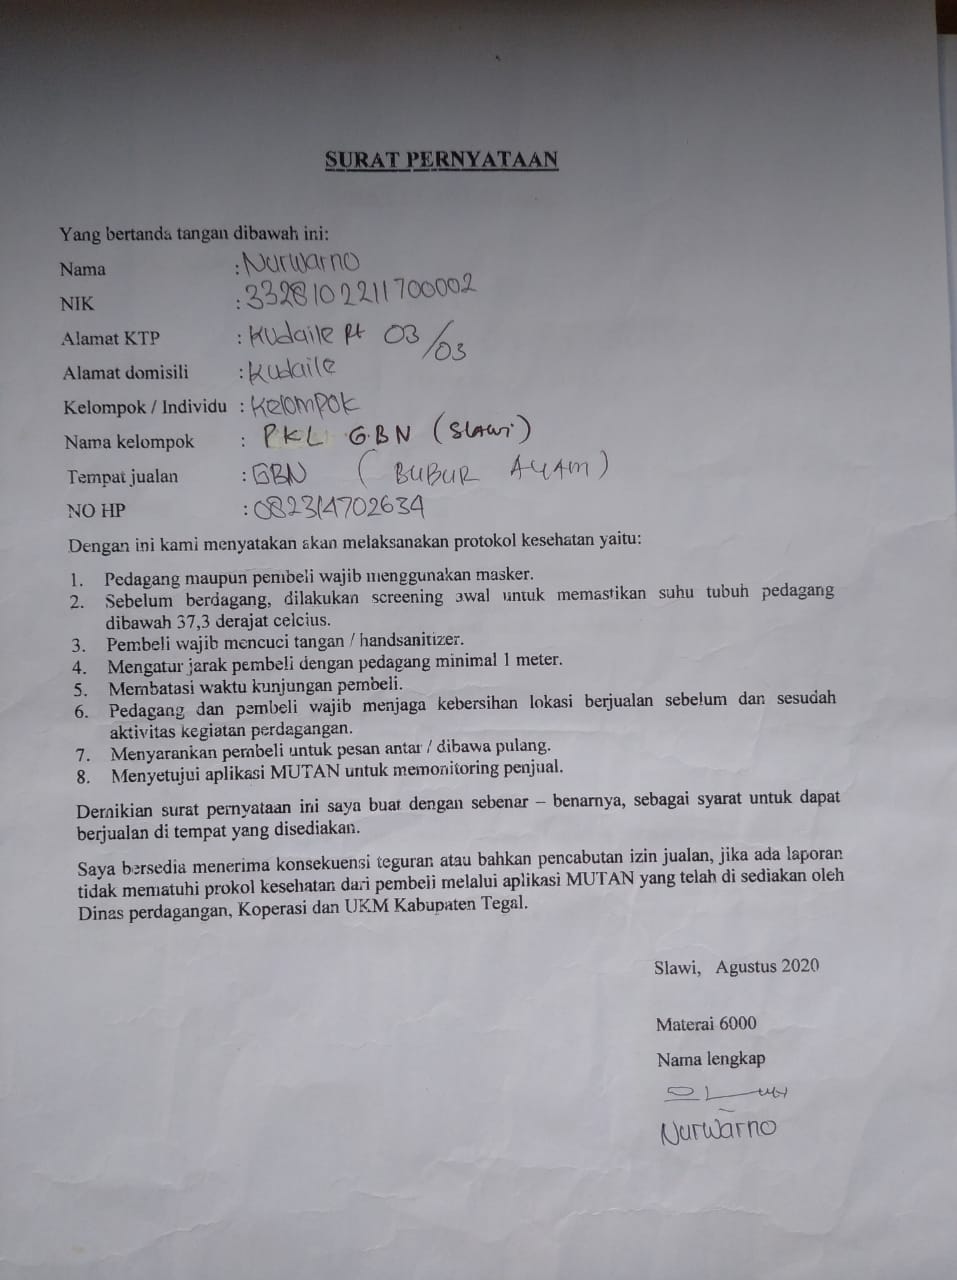 SURAT PERNYATAAN
Yang bertanda tangan dibawah ini:
Nama : Nurwarno
NIK : 3328102211700002
Alamat KTP : Kudaile Rt 03/03
Alamat domisili : Kudaile
Kelompok / Individu : Kelompok
Nama kelompok : PKL GBN (Slawi)
Tempat jualan : GBN ( BUBUR AYAM )
NO HP : 082314702634
Dengan ini kami menyatakan akan melaksanakan protokol kesehatan yaitu:
1. Pedagang maupun pembeli wajib menggunakan masker.
2. Sebelum berdagang, dilakukan screening awal untuk memastikan suhu tubuh pedagang
dibawah 37,3 derajat celcius.
3. Pembeli wajib mencuci tangan / handsanitizer.
4. Mengatur jarak pembeli dengan pedagang minimal 1 meter.
5. Membatasi waktu kunjungan pembeli.
6. Pedagang dan pembeli wajib menjaga kebersihan lokasi berjualan sebelum dan sesudah
aktivitas kegiatan perdagangan.
7. Menyarankan pembeli untuk pesan antar / dibawa pulang.
8. Menyetujui aplikasi MUTAN untuk memonitoring penjual.
Demikian surat pernyataan ini saya buat dengan sebenar – benarnya, sebagai syarat untuk dapat
berjualan di tempat yang disediakan.
Saya bersedia menerima konsekuensi teguran atau bahkan pencabutan izin jualan, jika ada laporan
tidak mematuhi prokol kesehatan dari pembeli melalui aplikasi MUTAN yang telah di sediakan oleh
Dinas perdagangan, Koperasi dan UKM Kabupaten Tegal.
Slawi, Agustus 2020
Materai 6000
Nama lengkap
Nurwarno